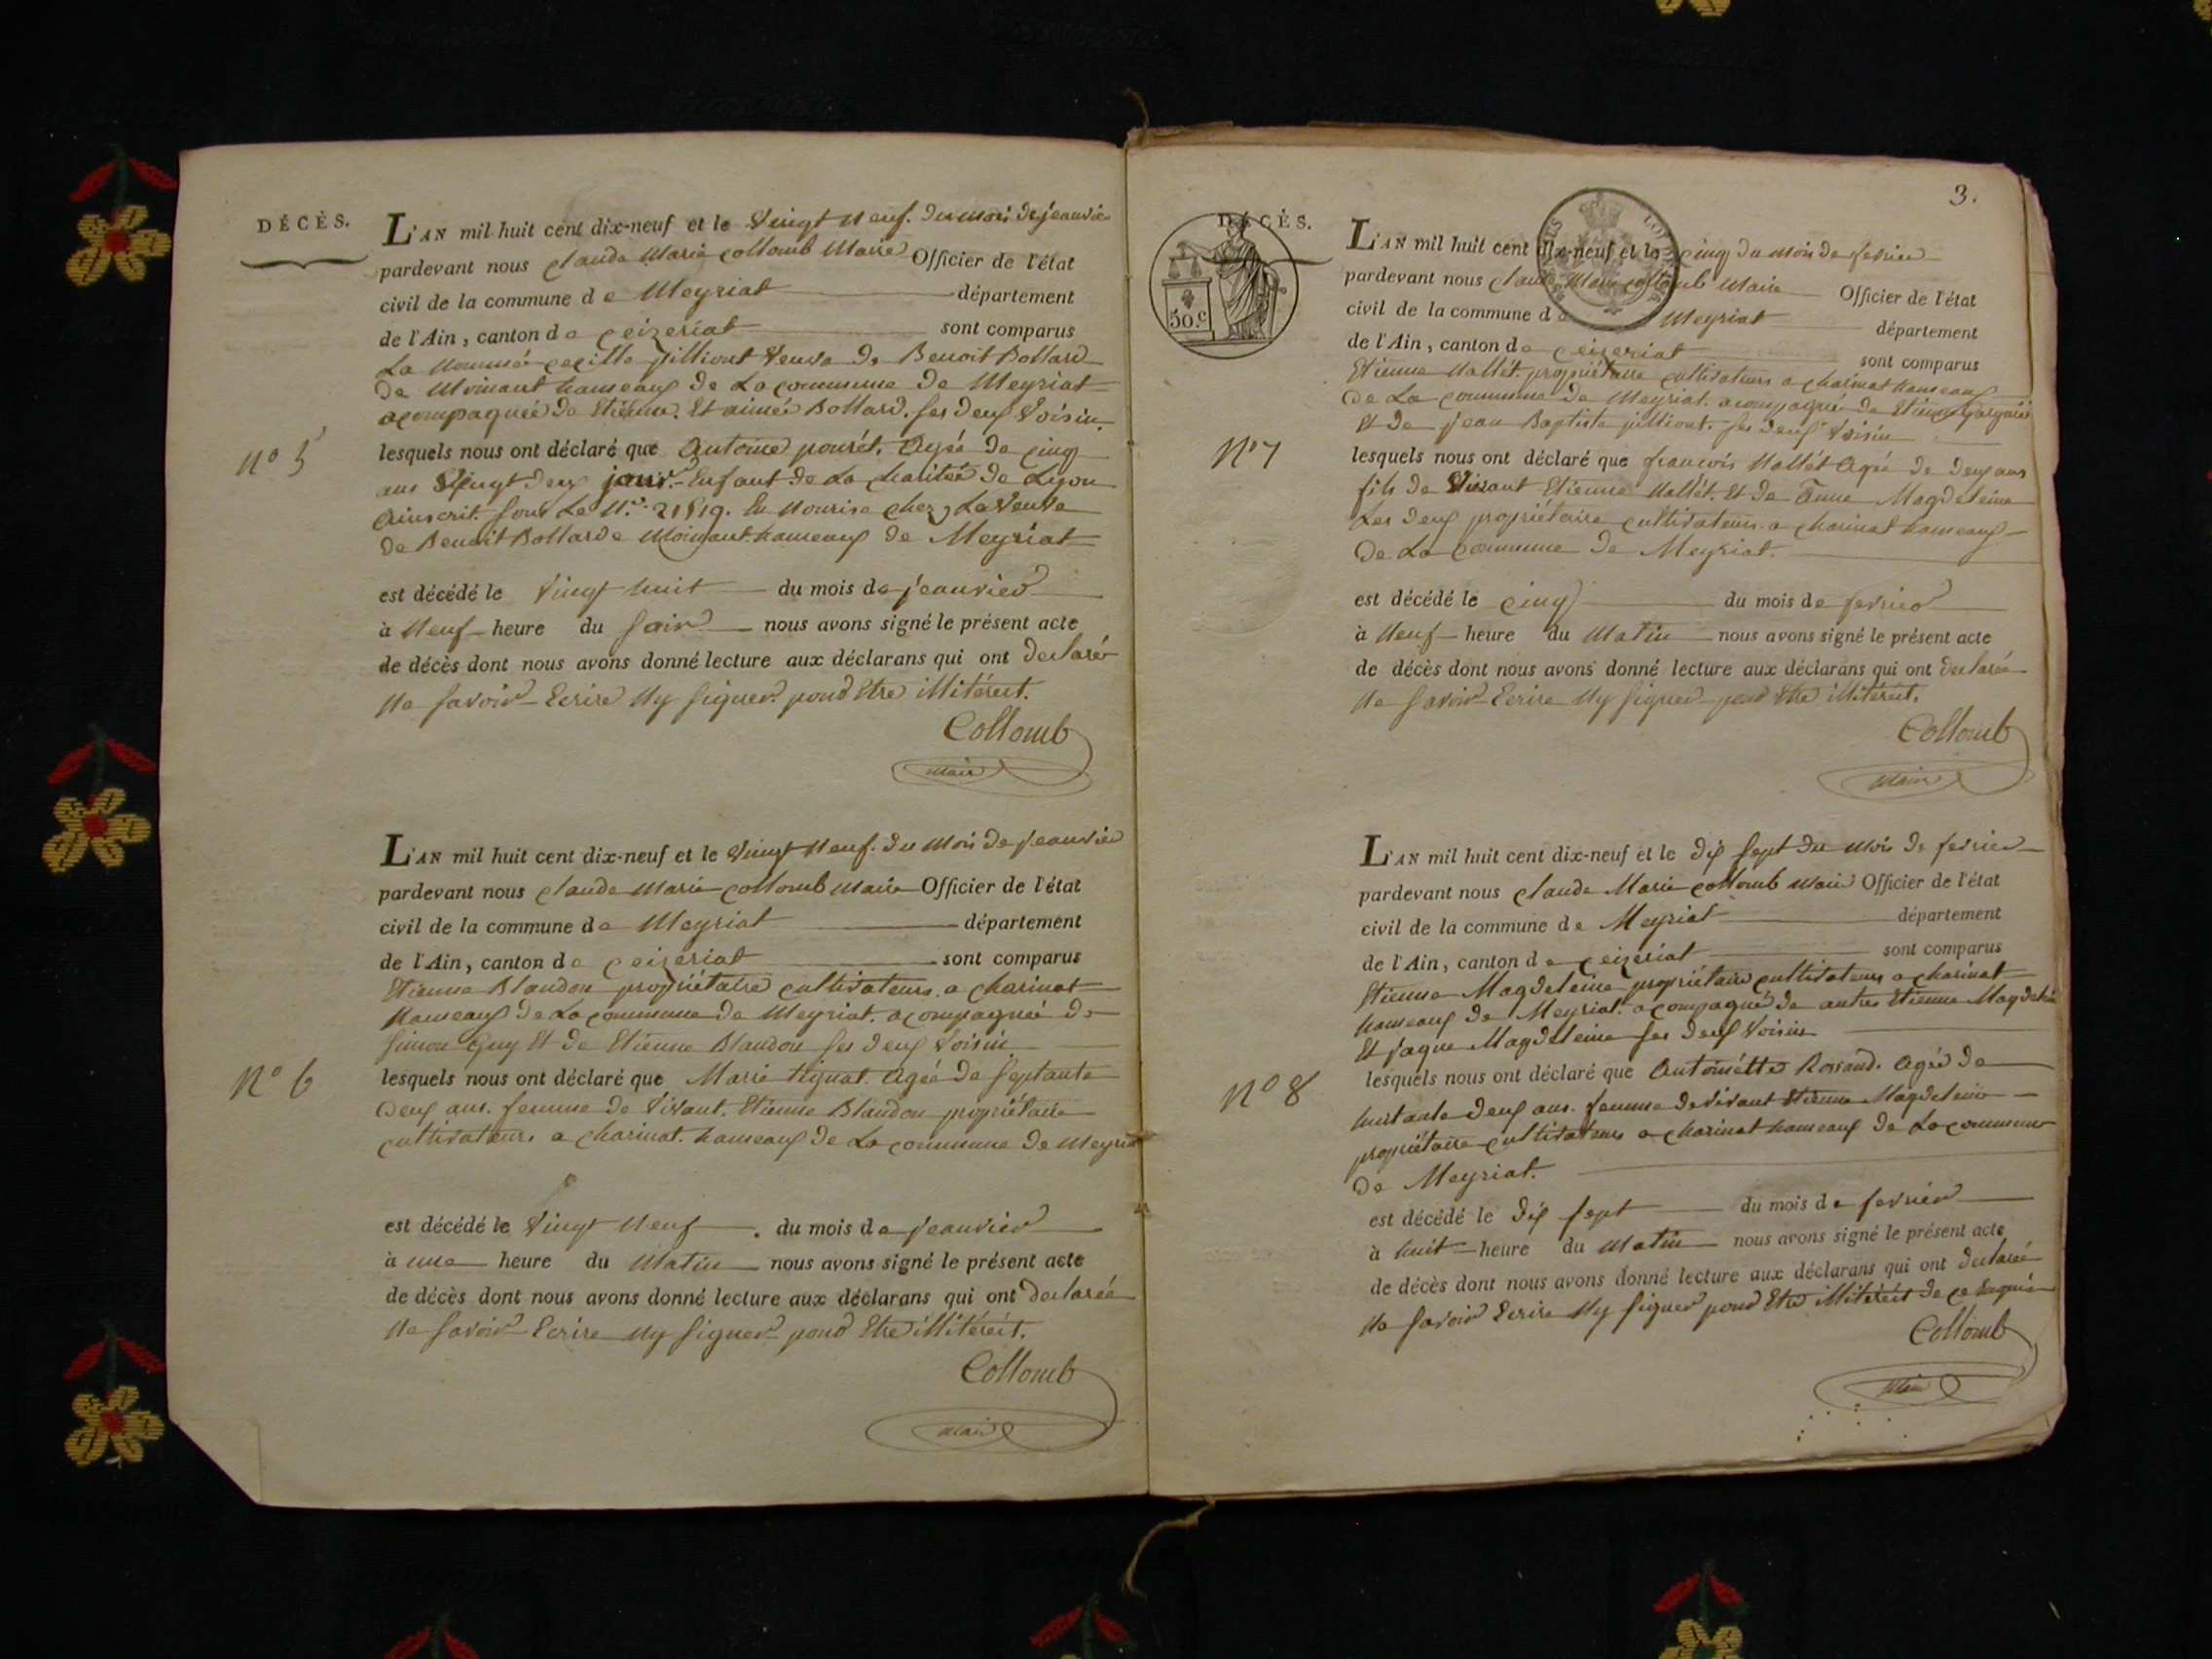 DÉCÈS.
L'AN mil huit cent dix-neuf et le vingt neuf. du mois de jeanvier
pardevant nous claude Marie collomb Maire Officier de l'état
civil de la commune de Meyriat département
de l'Ain, canton de ceizeriat sont comparus
La nommée cecille pilliont veuve de Benoit Bollard
de Moinant hameaux de La commune de Meyriat
acompagnée de Etienne. Et aimée Bollard. ses deux voisin.
n° 5
lesquels nous ont déclaré que Antoine Agée de cinq
ans vingt deux jour. Enfant de La halitée de Lyon
ainscrit. sous Le N.° 21519. En Nourise chez La veuve
de Benoit Bollard a Moinant hameaux de Meyriat
est décédé le vingt huit du mois de jeanvier
à Neuf heure du soir nous avons signé le présent acte
de décès dont nous avons donné lecture aux déclarans qui ont declarér
Ne savoir Ecrire Ny signer. pour Etre illitéreit.
Collomb
maire
L'AN mil huit cent dix-neuf et le vingt Neuf. du Mois de jeanvier
pardevant nous claude Marie collomb maire Officier de l'état
civil de la commune de Meyriat département
de l'Ain, canton de ceizeriat sont comparus
Etienne Blandon propriétaire cultivateurs. a charinat
hameaux de La commune de Meyriat. acompagnée de
simon Guy Et de Etienne Blandon ses deux voisin
N° 6
lesquels nous ont déclaré que Marie Agée de septante
deux ans. femme de vivant. Etienne Blandon propriétaire
cultivateurs a charinat. hameaux de La commune de Meyriat
est décédé le vingt Neuf du mois de jeanvier
à une heure du Matin nous avons signé le présent acte
de décès dont nous avons donné lecture aux déclarans qui ont declarée
Ne savoir Ecrire Ny signer pour Etre illitéreit.
Collomb
maire
3.
DÉCÈS.
50.c
L'AN mil huit cent dix-neuf et le cinq du mois de fevrier
pardevant nous claude Marie collomb Maire Officier de l'état
civil de la commune de Meyriat département
de l'Ain, canton de ceizeriat sont comparus
Etienne Mallét propriétaire cultivateurs a charinat hameaux
de La commune de Meyriat. acompagnée de Etienne
Et de jean Baptiste pilliont. ses deux voisin
N° 7
lesquels nous ont déclaré que françois Mallét Agée de deux ans
fils de vivant Etienne Mallét. Et de Anne Magdeleine
Les deux propriétaire cultivateurs. a charinat hameaux
de La commune de Meyriat.
est décédé le cinq du mois de fevrier
à Neuf heure du Matin nous avons signé le présent acte
de décès dont nous avons donné lecture aux déclarans qui ont declarée
Ne savoir Ecrire Ny signer pour Etre illitéreit.
Collomb
Maire
L'AN mil huit cent dix-neuf et le dix sept du mois de fevrier
pardevant nous claude Marie collomb maire Officier de l'état
civil de la commune de Meyriat département
de l'Ain, canton de ceizeriat sont comparus
Etienne Magdeleine propriétaire cultivateurs a charinat
hameaux de Meyriat. acompagnée de autres Etienne Magdeleine
Et jaque Magdeleine ses deux voisins
N° 8
lesquels nous ont déclaré que Antoinétte Agée de
huitante deux ans. femme de vivant Etienne Magdeleine
propriétaire cultivateurs a charinat hameaux de La commune
de Meyriat.
est décédé le dix sept du mois de fevrier
à huit heure du Matin nous avons signé le présent acte
de décès dont nous avons donné lecture aux déclarans qui ont declareé
Ne savoir Ecrire Ny signer pour Etre illitéréit de ce
Collomb
Maire